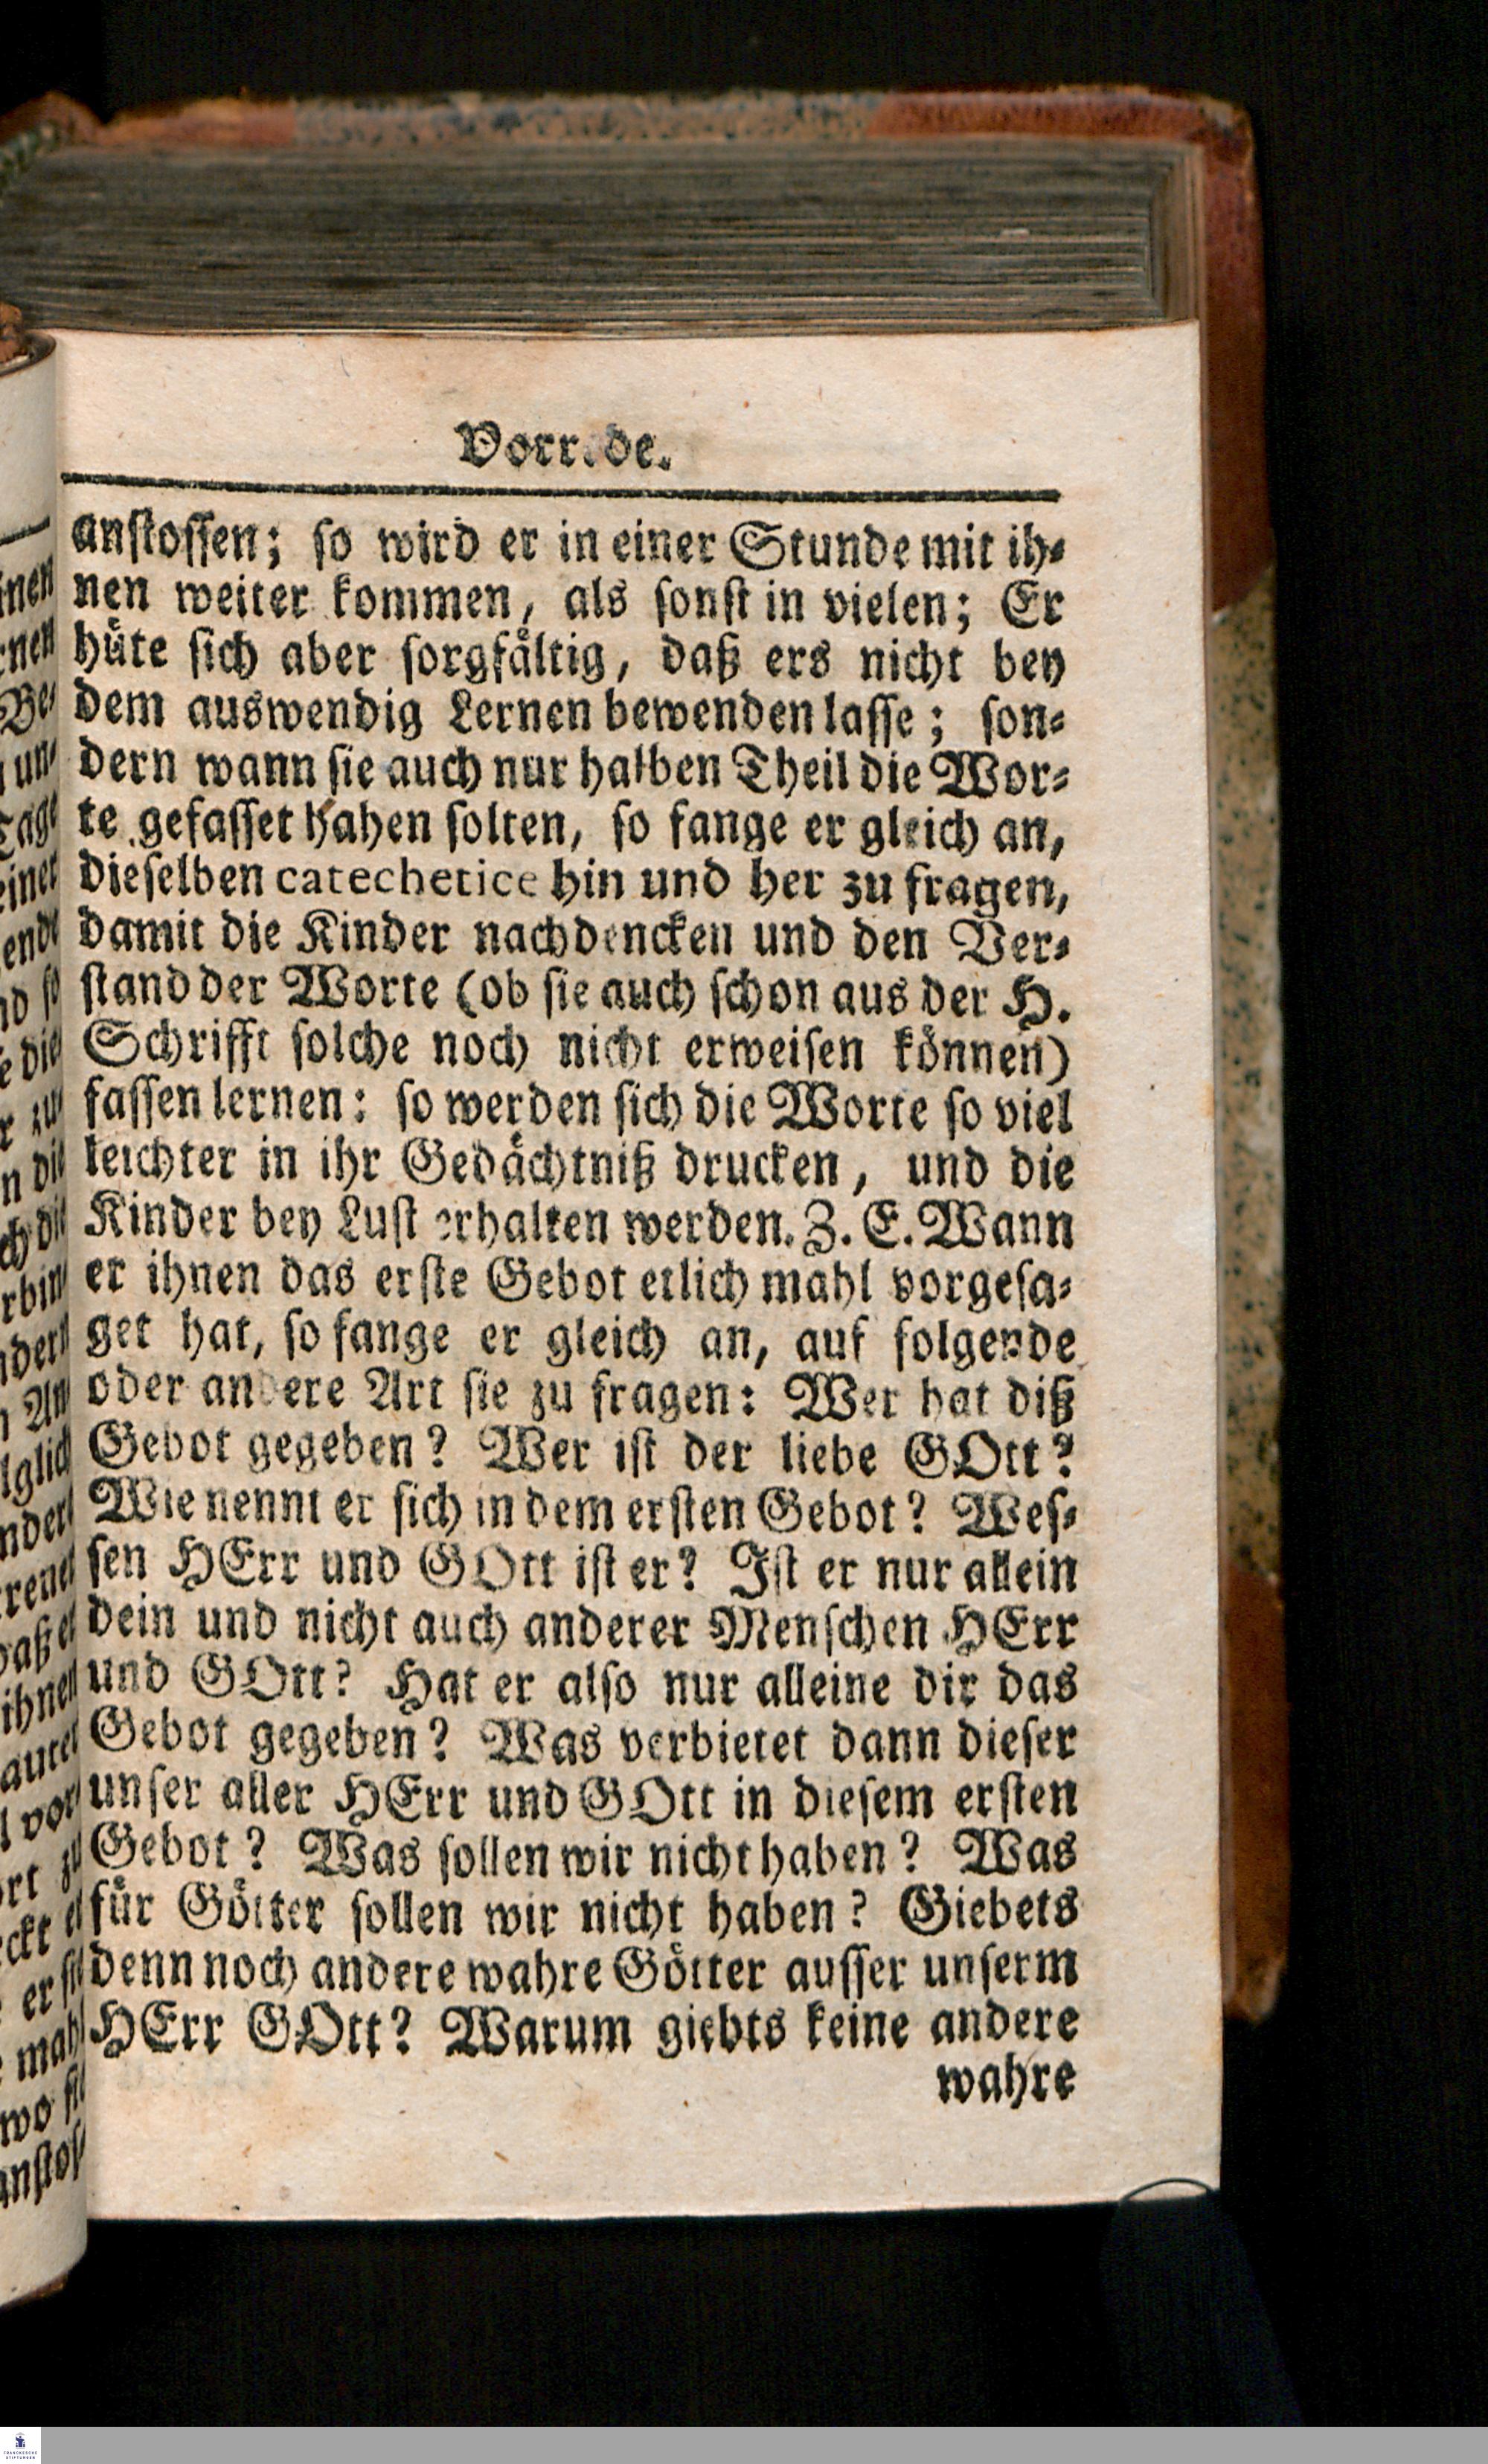 Vorrede.
anstossen; so wird er in einer Stunde mit ih⸗
nen weiter kommen, als sonst in vielen; Er
hüte sich aber sorgfältig, daß ers nicht bey
dem auswendig Lernen bewenden lasse; son⸗
dern wann sie auch nur halben Theil die Wor⸗
te gefasset hahen solten, so fange er gleich an,
dieselben catechetice hin und her zu fragen,
damit die Kinder nachdencken und den Ver⸗
stand der Worte (ob sie auch schon aus der H.
Schrifft solche noch nicht erweisen können)
fassen lernen: so werden sich die Worte so viel
leichter in ihr Gedächtniß drucken, und die
Kinder bey Lust erhalten werden. Z. E. Wann
er ihnen das erste Gebot etlich mahl vorgesa⸗
get hat, so fange er gleich an, auf folgende
oder andere Art sie zu fragen: Wer hat diß
Gebot gegeben? Wer ist der liebe GOtt?
Wie nennt er sich in dem ersten Gebot? Wes⸗
sen HErr und GOtt ist er? Ist er nur allein
dein und nicht auch anderer Menschen HErr
und GOtt? Hat er also nur alleine dir das
Gebot gegeben? Was verbietet dann dieser
unser aller HErr und GOtt in diesem ersten
Gebot? Was sollen wir nicht haben? Was
für Götter sollen wir nicht haben? Giebets
denn noch andere wahre Götter ausser unserm
HErr GOtt? Warum giebts keine andere
wahre